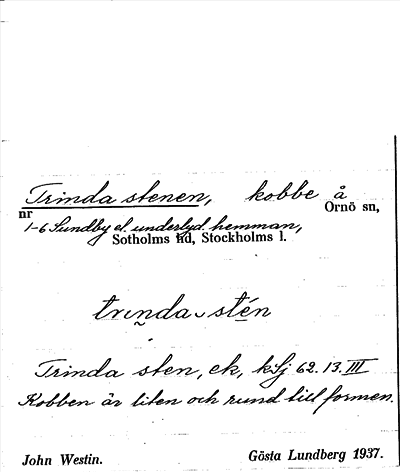 Trinda stenen, kobbe å
nr Ornö sn,
1-6 Sundby el. underlyd. hemman,
Sotholms hd, Stockholms l.
trı̰nda ‿ stén
Trinda sten, ek, kSj 62.13.III
Kobben är liten och rund till formen.
John Westin. Gösta Lundberg 1937.